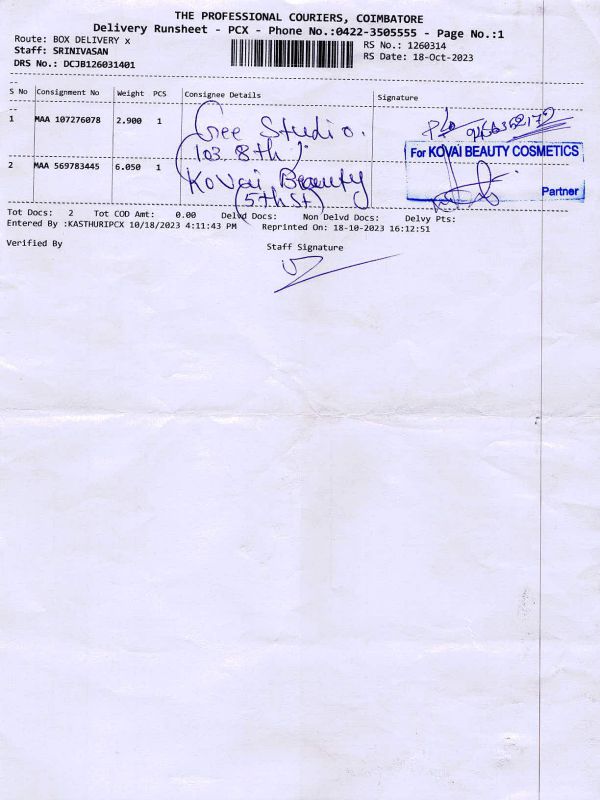 THE PROFESSIONAL COURIERS, COIMBATORE
Delivery Runsheet - PCX - Phone No.:0422-3505555 - Page No.:1
Route: BOX DELIVERY x
Staff: SRINIVASAN
DRS No.: DCJB126031401
RS No.: 1260314
RS Date: 18-Oct-2023
S No Consignment No Weight PCS Consignee Details Signature
1 MAA 107276078 2.900 1 Gee Studio.
(103 8th)
2 MAA 569783445 6.050 1 Kovai Beauty
(5th St)
For KOVAI BEAUTY COSMETICS
Partner
Tot Docs: 2 Tot COD Amt: 0.00 Delvd Docs: Non Delvd Docs: Delvy Pts:
Entered By :KASTHURIPCX 10/18/2023 4:11:43 PM Reprinted On: 18-10-2023 16:12:51
Verified By Staff Signature